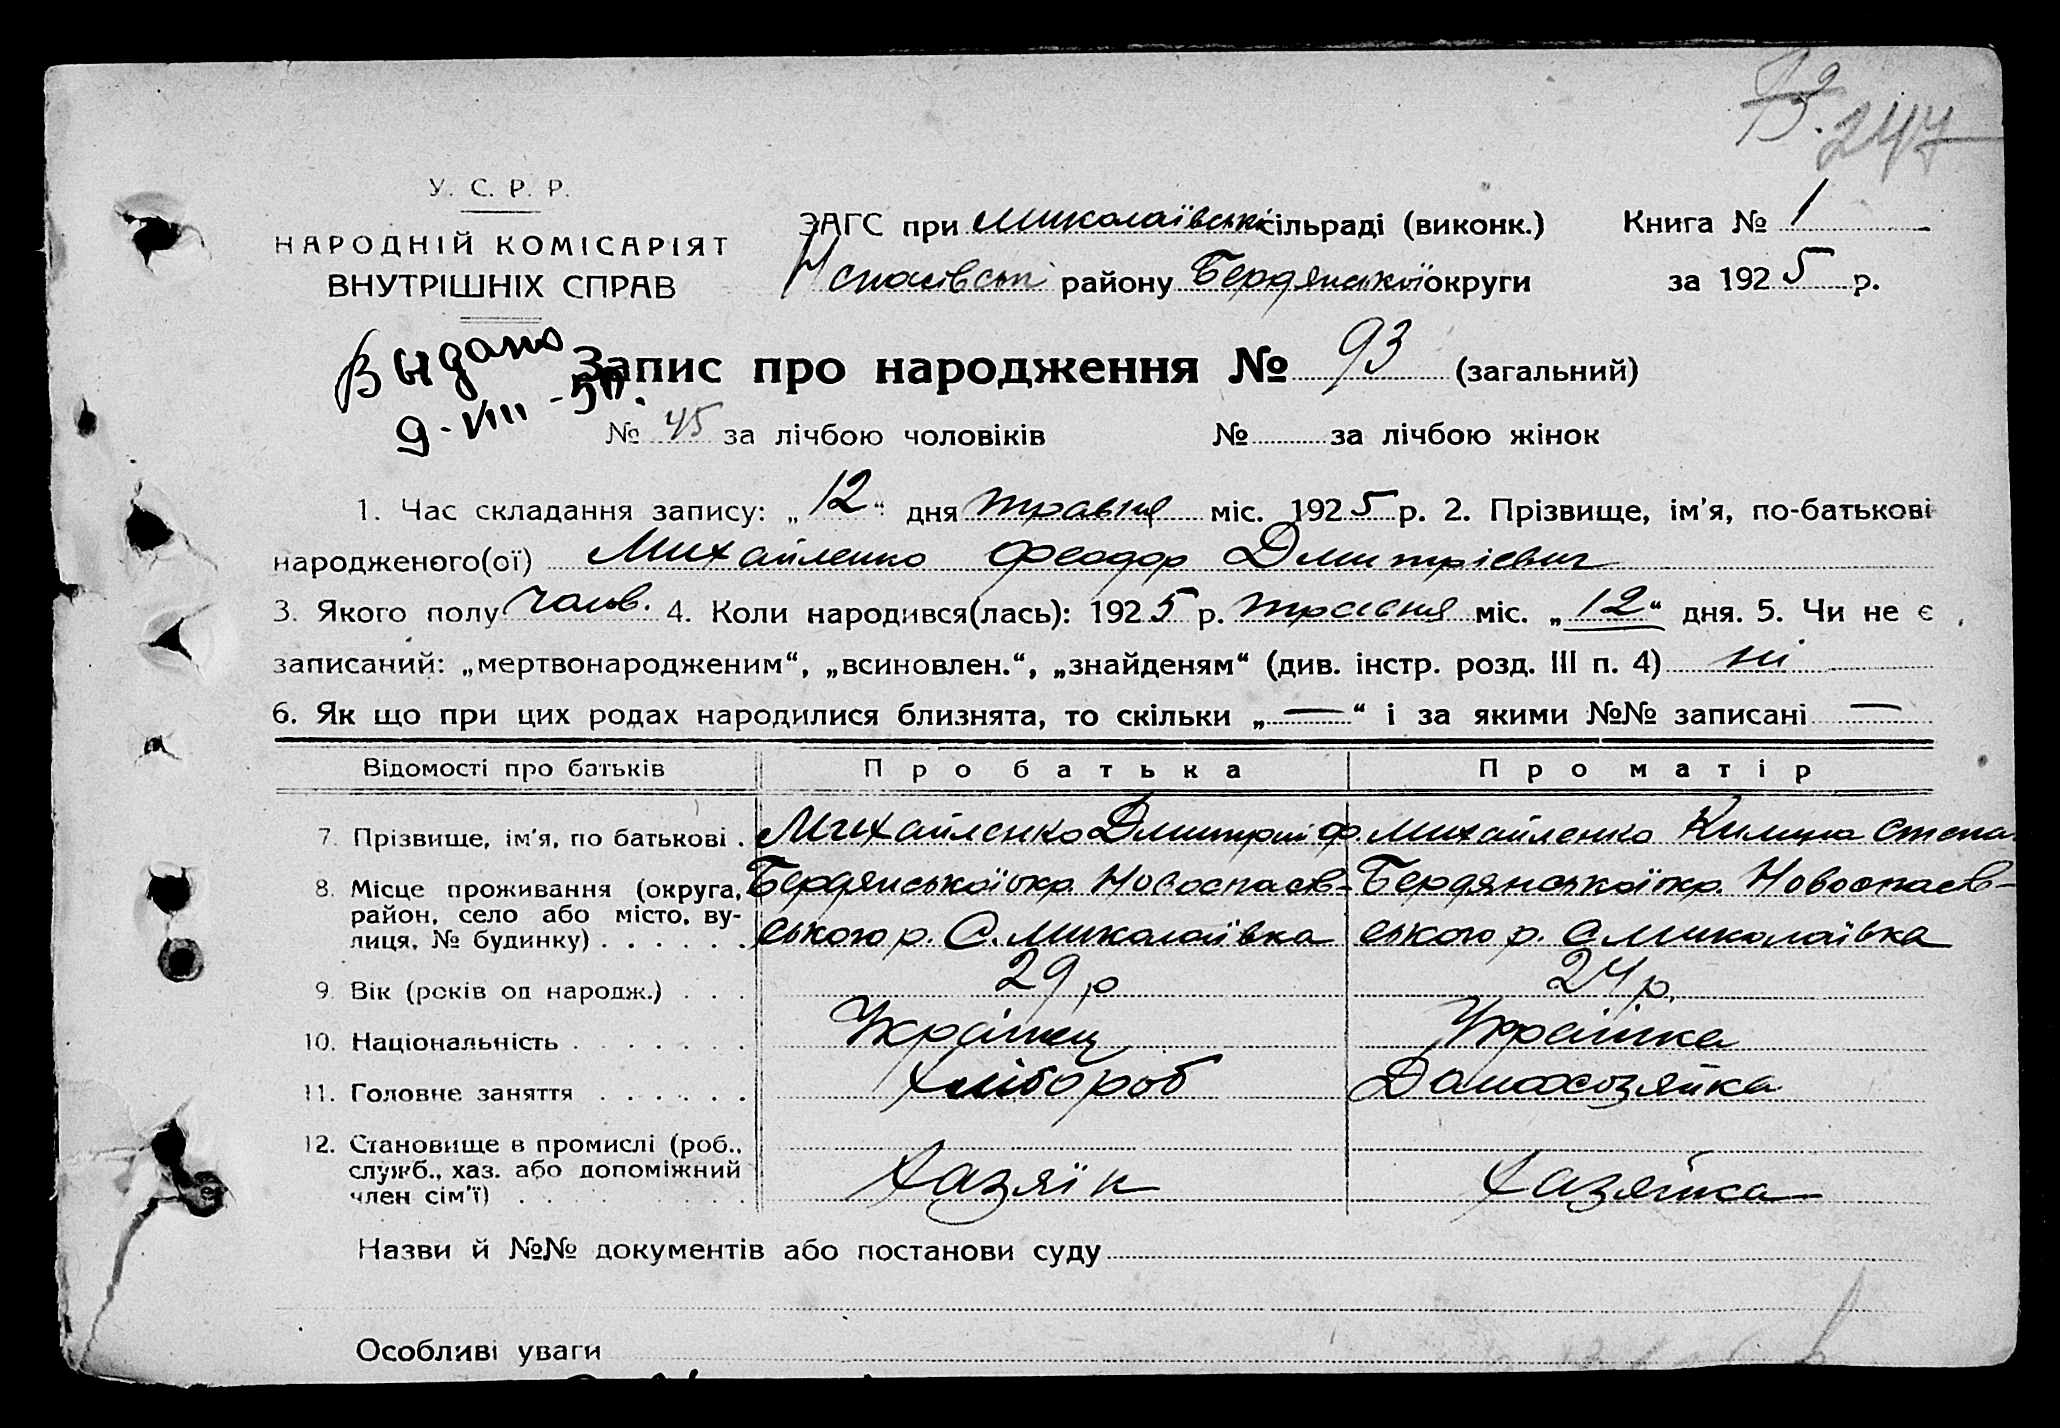 247
У. С. Р. Р.
НАРОДНІЙ КОМІСАРІЯТ
ВНУТРІШНІХ СПРАВ
ЗАГС при Миколаївські сільраді (виконк.) Книга № 1
району Бердянської округи за 1925 р.
Выдано
9-VIII-50.
Запис про народження № 93 (загальний)
№ 45 за лічбою чоловіків № за лічбою жінок
1. Час складання запису: „12“ дня травня міс. 1925 р. 2. Прізвище, ім'я, по-батькові
народженого(ої) Михайленко Феодор Дмитрієвич
3. Якого полу чолов. 4. Коли народився(лась): 1925 р. травня міс. „12“ дня. 5. Чи не є
записаний: „мертвонародженим“, „всиновлен.“, „знайденям“ (див. інстр. розд. III п. 4) ні
6. Як що при цих родах народилися близнята, то скільки „—“ і за якими №№ записані —
Відомості про батьків Про батька Про матір
7. Прізвище, ім'я, по батькові . Михайленко Дмитрий Ф. Михайленко Килина Степа
8. Місце проживання (округа, Бердянської окр. Новоспасів- Бердянської окр. Новоспасів-
район, село або місто, ву-
лиця, № будинку) . . . . . . ського р. С. Миколаївка ського р. С Миколаївка
9. Вік (років од народж.) . . . 29 р 24 р.
10. Національність . . . . . . . Українец Українка
11. Головне заняття . . . . . . Хлібороб Домохозяйка
12. Становище в промислі (роб.,
служб., хаз. або допоміжний
член сім'ї) . . . . . . . . Хазяїн Хазяйка
Назви й №№ документів або постанови суду
Особливі уваги